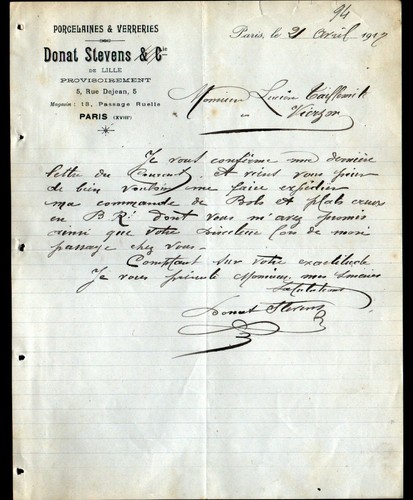 94
PORCELAINES & VERRERIES
Paris, le 21 Avril 1917
Donat Stevens & Cie
DE LILLE
PROVISOIREMENT
5, Rue Dejean, 5
Magasin : 18, Passage Ruelle
PARIS (XVIIIe)
Monsieur Lucien
Vierzon
Je vous confirme ma dernière
lettre du Courant. Et viens vous prier
de bien vouloir me faire expédier
ma commande de Bols et plats creux
en B R dont vous m'avez promis
ainsi que votre lors de mon
passage chez vous.
Comptant sur votre exactitude
Je vous présente Monsieur mes sincères
Salutations
Donat Stevens